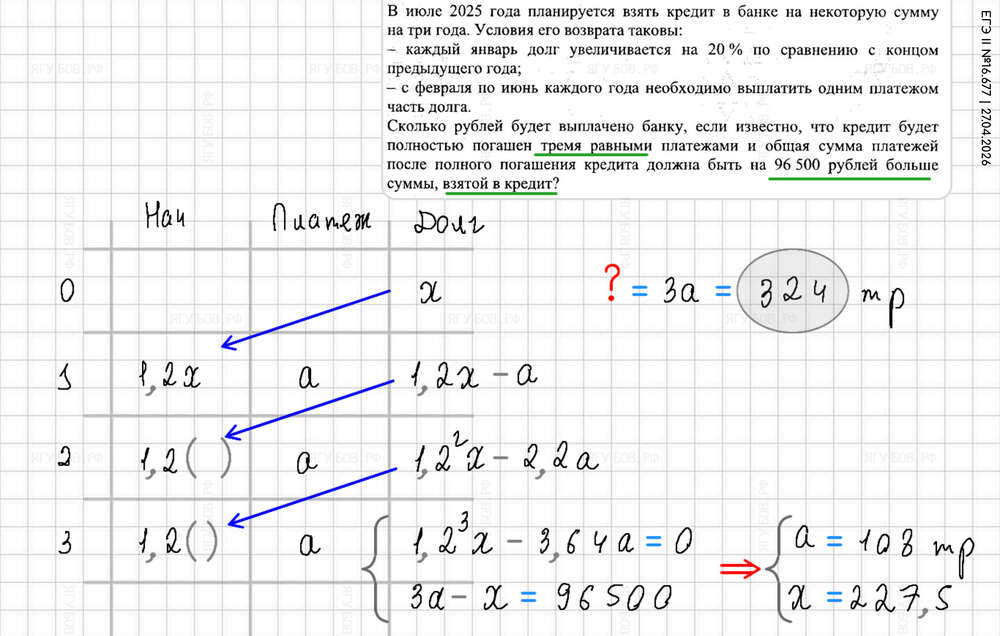 В июле 2025 года планируется взять кредит в банке на некоторую сумму
на три года. Условия его возврата таковы:
– каждый январь долг увеличивается на 20 % по сравнению с концом
предыдущего года;
– с февраля по июнь каждого года необходимо выплатить одним платежом
часть долга.
Сколько рублей будет выплачено банку, если известно, что кредит будет
полностью погашен тремя равными платежами и общая сумма платежей
после полного погашения кредита должна быть на 96 500 рублей больше
суммы, взятой в кредит?
ЕГЭ II №16.677 | 27.04.2026
Нач Платеж Долг
0 x
? = 3a = 324 тр
1 1,2x a 1,2x - a
2 1,2( ) a 1,2²x - 2,2a
3 1,2( ) a 1,2³x - 3,64a = 0 ⇒ a = 108 тр
3a - x = 96500 x = 227,5
ЯГУБОВ.РФ